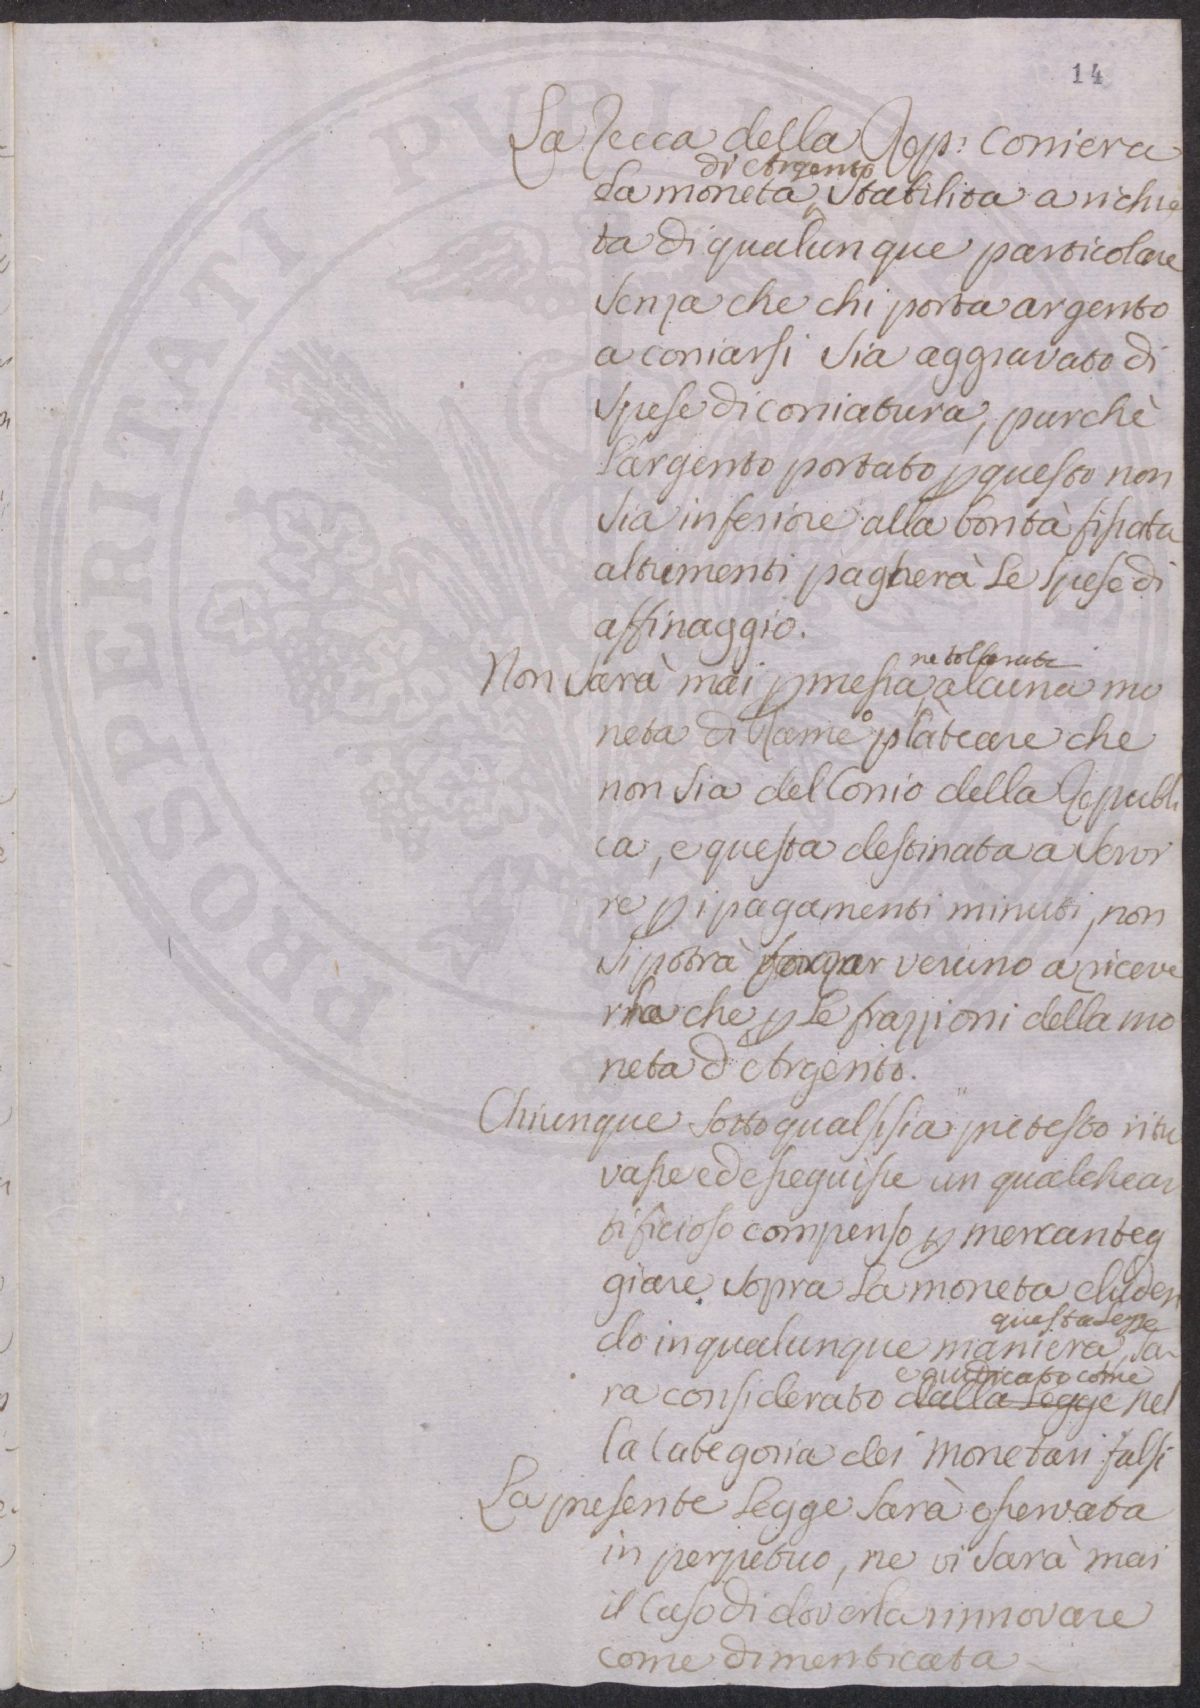 14
La Zecca della Rep: conierà
di Argento
la moneta stabilita a richie
ta di qualunque particolare
senza che chi porta argento
a coniarsi sia aggravato di
spese di coniatura, purchè
l'argento portato p questo non
sia inferiore alla bontà fissata
altrimenti pagherà le spese di
affinaggio.
ne tollerata
Non sarà mai pmessa alcuna mo
neta di Rame o plateare che
non sia del Conio della Republi
ca, e questa destinata a servi
re p i pagamenti minuti, non
si potrà forzar veruno a riceve
rla che p le frazzioni della mo
neta d'Argento.
Chiunque sotto qualsisia pretesto ritro
vasse ed eseguisse un qualche ar
tificioso compenso p mercanteg
giare sopra la moneta eluden
questa Legge
do in qualunque maniera, sa
e giudicato come
rà considerato dalla Legge nel
la Categoria dei Monetari falsi
La presente Legge sarà osservata
in perpetuo, ne vi sarà mai
il Caso di doverla rinnovare
come dimenticata
PROSPERITATI PUBLI